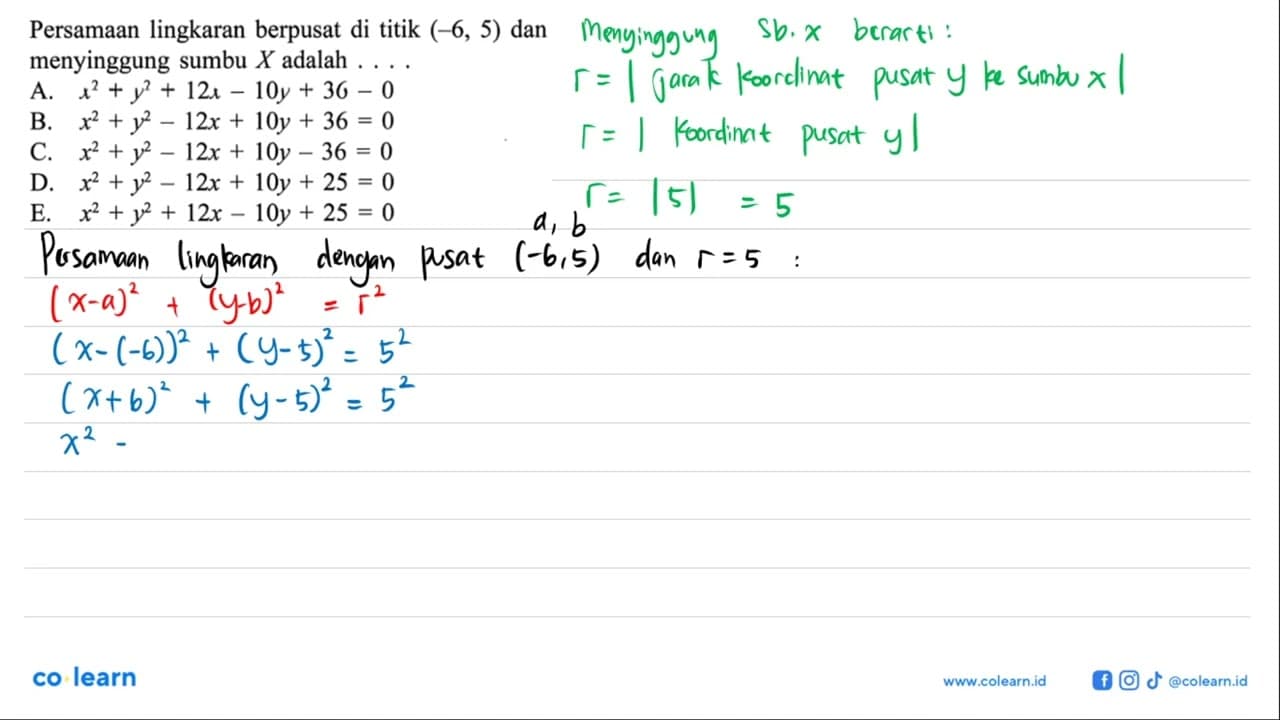 Persamaan lingkaran berpusat di titik (–6, 5) dan
menyinggung sumbu X adalah . . . .
A. x² + y² + 12x – 10y + 36 – 0
B. x² + y² – 12x + 10y + 36 = 0
C. x² + y² – 12x + 10y – 36 = 0
D. x² + y² – 12x + 10y + 25 = 0
E. x² + y² + 12x – 10y + 25 = 0
Menyinggung Sb. x berarti :
r = | jarak koordinat pusat y ke sumbu x |
r = | koordinat pusat y|
r = |5| = 5
a, b
Persamaan lingkaran dengan pusat (-6,5) dan r = 5 :
(x-a)² + (y-b)² = r²
(x-(-6))² + (y-5)² = 5²
(x+6)² + (y-5)² = 5²
x² -
co learn
www.colearn.id
@colearn.id